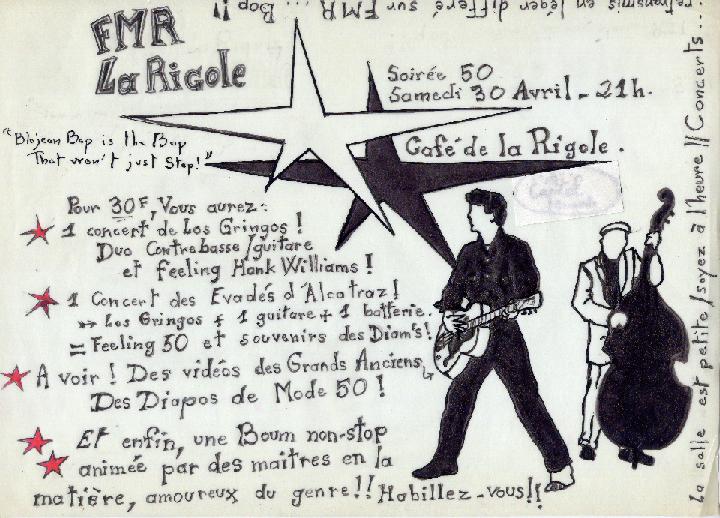 FMR
La Rigole
Soirée 50
Samedi 30 Avril - 21h.
Café de la Rigole.
"Blojean Bop is the Bop
That won't just Stop!"
Pour 30F, Vous aurez:
1 concert de Los Gringos!
Duo Contrebasse/guitare
et feeling Hank Williams!
1 Concert des Evadés d'Alcatraz!
→ Los Gringos + 1 guitare + 1 batterie.
= Feeling 50 et souvenirs des Diam's!
A voir! Des vidéos des Grands Anciens
Des Diapos de Mode 50!
Et enfin, une Boum non-stop
animée par des maitres en la
matière, amoureux du genre!! Habillez-vous!!
La salle est petite/soyez à l'heure || Concerts...
retransmis en léger différé sur FMR ... Bop !!